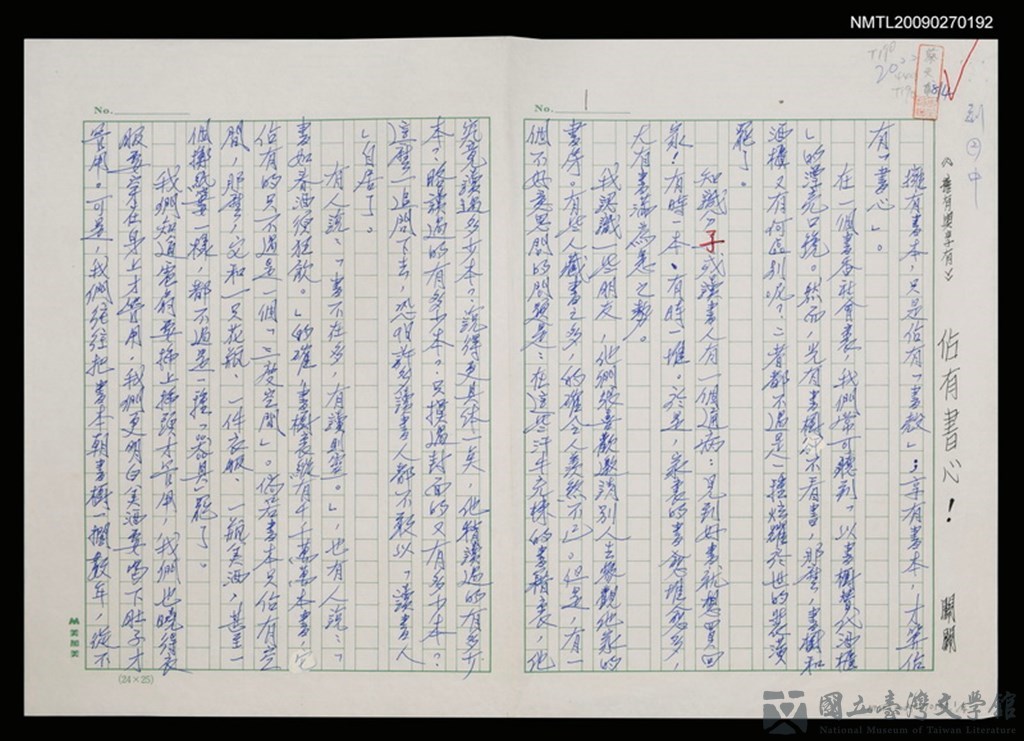 NMTL20090270192
副 ② 中
《擁有與享有》
佔有書心！
關關
No. 1
擁有書本，只是佔有「書殼」；享有書本，才算佔
有「書心」。
在一個書香社會裏，我們常可聽到「以書櫥替代酒櫃
」的漂亮口號。然而，光有書櫥，不看書，那麼，書櫥和
酒櫃又有何區別呢？二者都不過是一種炫耀於世的裝潢
罷了。
知識分子或讀書人有一個通病：見到好書就想買回
家！有時一本、有時一堆。於是，家裏的書愈堆愈多，
大有書滿為患之勢。
我認識一些朋友，他們很喜歡邀請別人去參觀他家的
書房。有些人藏書之多，的確令人羨煞不已。但是，有一
個不好意思問的問題是：在這些汗牛充棟的書籍裏，他
No.
究竟讀過多少本？說得更具體一矣，他精讀過的有多少
本？略讀過的有多少本？只摸過封面的又有多少本？
這麼一追問下去，恐怕許多讀書人都不敢以「讀書人
」自居了。
有人說：「書不在多，有讀則靈。」，也有人說：「
書如春酒須狂飲。」的確，書櫥裏縱有千千萬萬本書，它
佔有的只不過是一個「三度空間」。倘若書本只佔有空
間，那麼，它和一只花瓶、一件衣服、一瓶美酒，甚至一
個擲飛鏢一樣，都不過是一種「器具」罷了。
我們知道寶劍要掛上牆頭才管用，我們也曉得衣
服要穿在身上才管用，我們更明白美酒要喝下肚子才
管用。可是，我們往往把書本朝書櫥一擱數年，從不
(24×25)
國立臺灣文學館
National Museum of Taiwan Literature